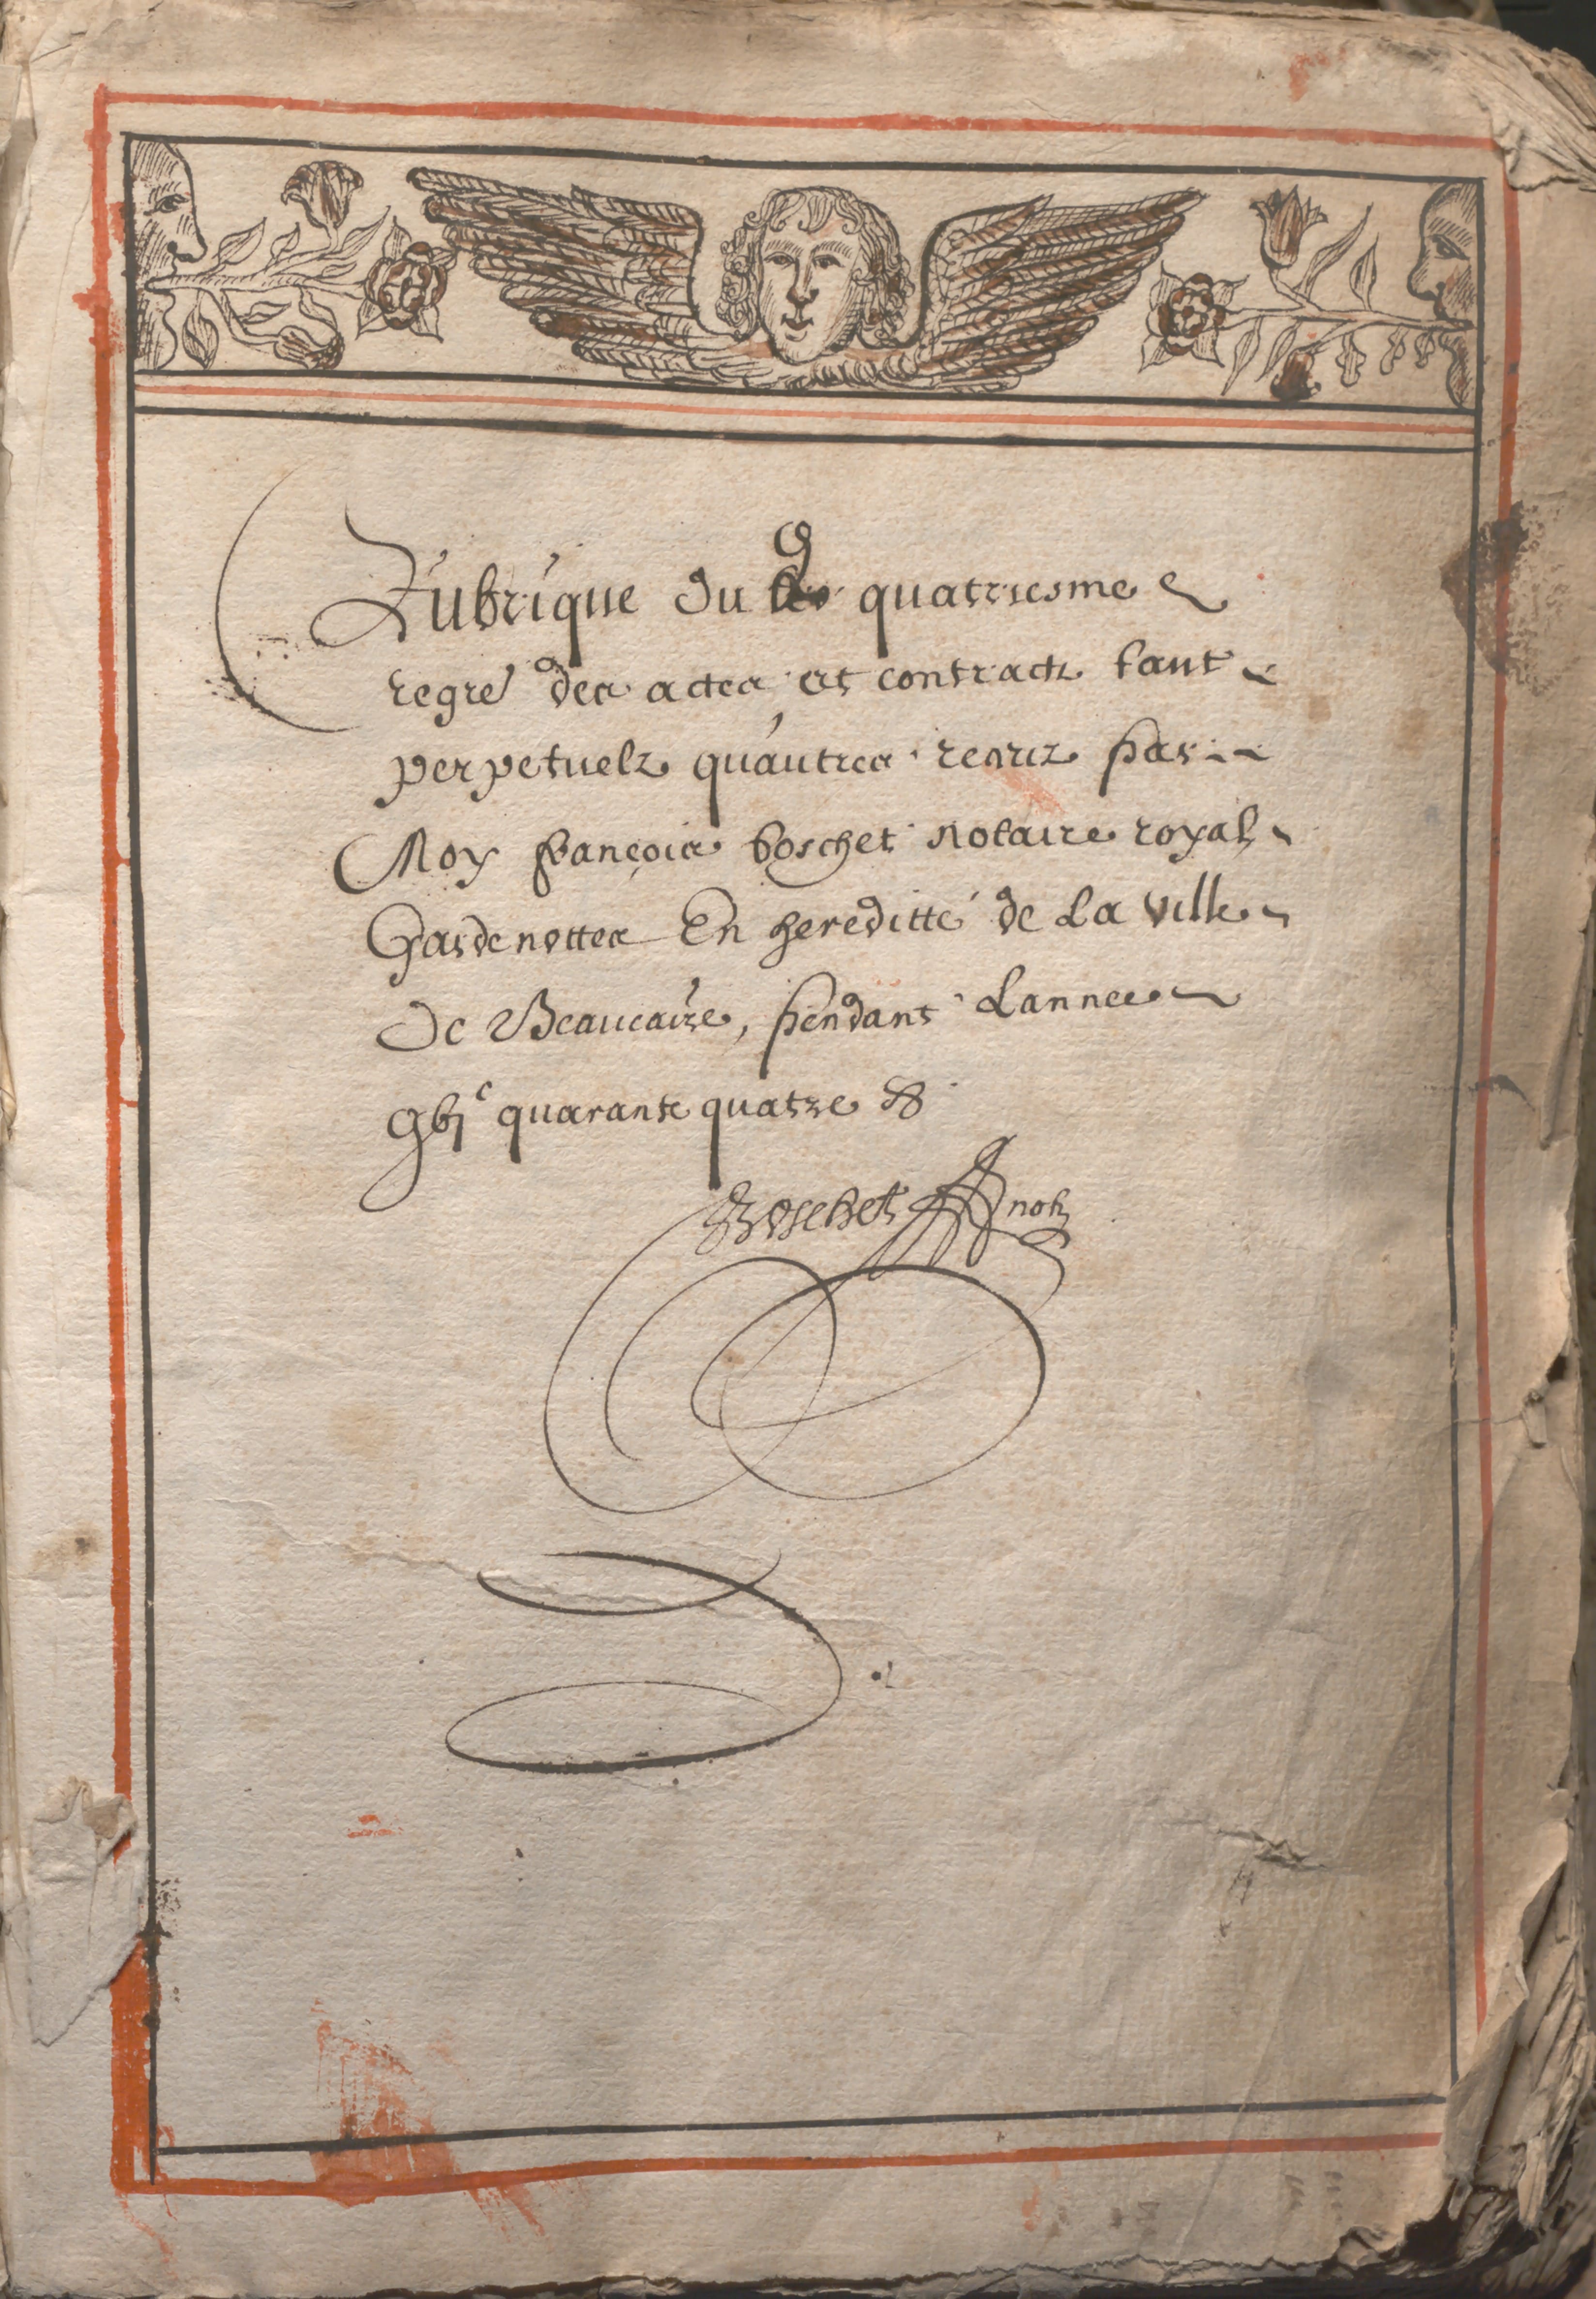 Rubrique du quatriesme
regre des actes et contractz tant
perpetuelz qu'autres receuz par
Moy françois boschet notaire royal
Gardenottes En hereditté de La ville
De Beaucaire, pendant Lannee
gbjc quarante quatre
Boschet notz